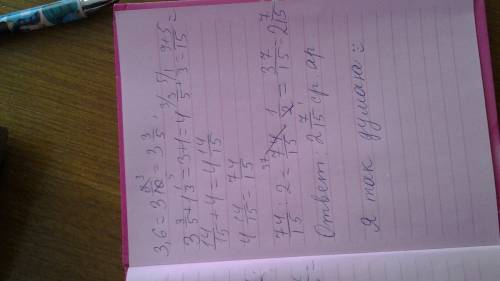 3,6 = 3 6/10 = 3 3/5
3 3/5 + 1 1/3 = 3 + 1 = 4
14/15 + 4 = 4 14/15
4 14/15 = 74/15
74/15 : 2 = 74/15 · 1/2 = 37/15 = 2 7/15
Ответ: 2 7/15 ср. ар
Я так думаю